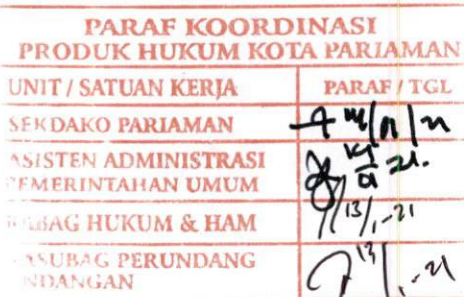 PARAF KOORDINASI
PRODUK HUKUM KOTA PARIAMAN
UNIT / SATUAN KERJA PARAF / TGL
SEKDAKO PARIAMAN
ASISTEN ADMINISTRASI
PEMERINTAHAN UMUM
KABAG HUKUM & HAM 13/1-21
KASUBAG PERUNDANG 13/1-21
UNDANGAN